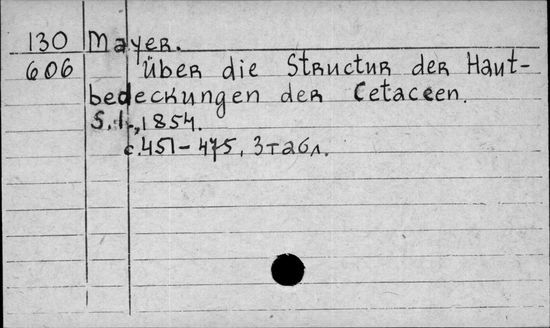 130 Mayer.
606 Über die Structur der Haut-
bedeckungen der Cetaceen.
S.l., 1854.
c.451-475, 3 табл.